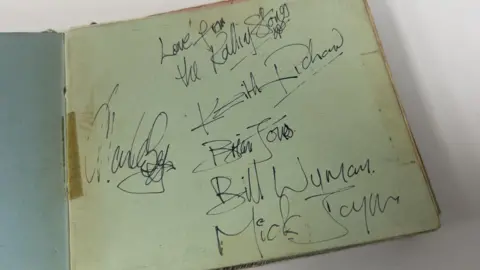 Love from
the Rolling Stones
Keith Richard
Brian Jones
Bill Wyman.
Mick Jagger